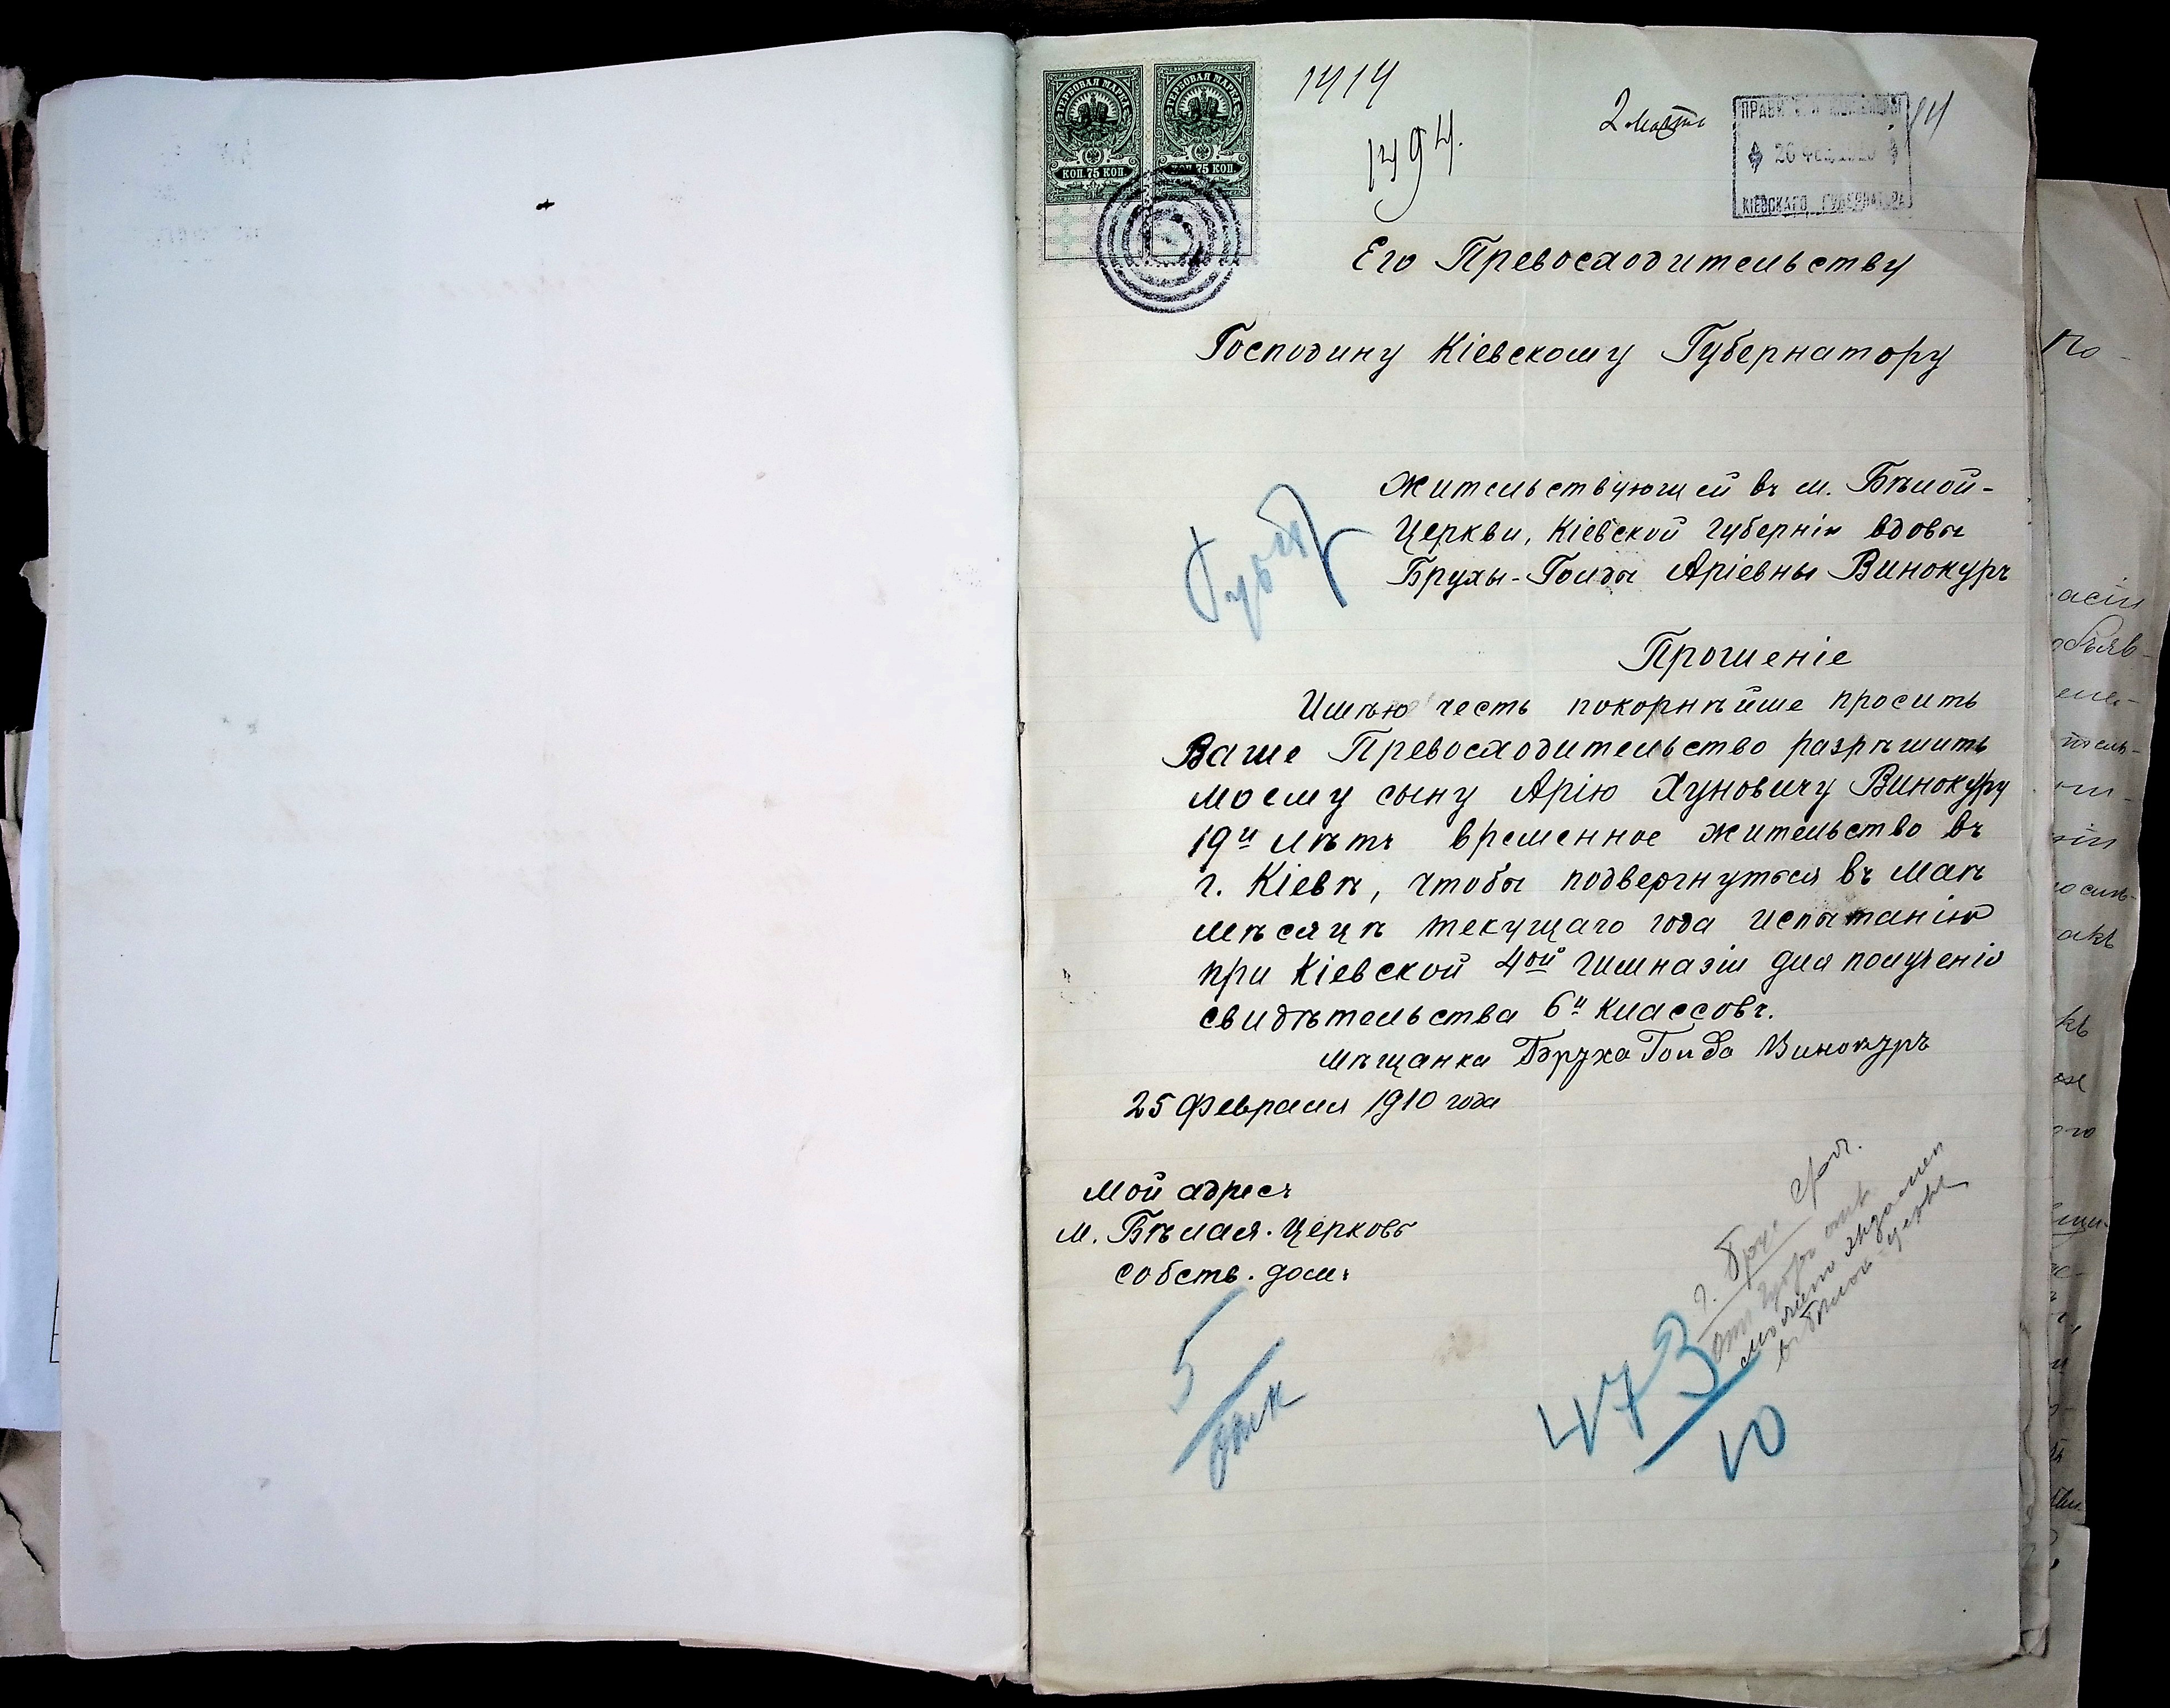 ГЕРБОВАЯ МАРКА ГЕРБОВАЯ МАРКА
КОП. 75 КОП. КОП. 75 КОП.
1414
1494.
2 марта
26 Фев. 1910
КІЕВСКАГО ГУБЕРНАТОРА
Его Превосходительству
Господину Кіевскому Губернатору
Жительствующей въ м. Бѣлой-
Церкви, Кіевской губерніи вдовы
Брухы-Голды Аріевны Винокуръ
Прошеніе
Имѣю честь покорнѣйше просить
Ваше Превосходительство разрѣшить
моему сыну Арію Хуновичу Винокуру
19и лѣтъ временное жительство въ
г. Кіевѣ, чтобы подвергнуться въ маѣ
мѣсяцѣ текущаго года испытанію
при Кіевской 4ой гимназіи для полученія
свидѣтельства 6и классовъ.
мѣщанка Бруха Голда Винокуръ
25 Февраля 1910 года
Мой адресъ
м. Бѣлая-Церковь
собств. домъ
5
473
10